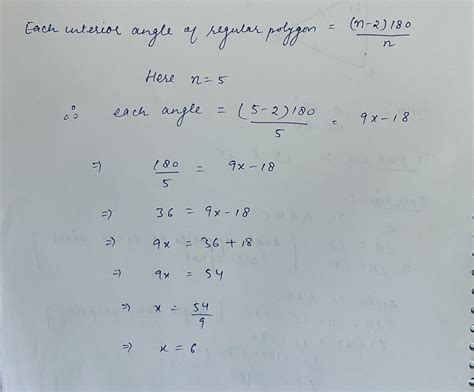 Each interior angle of regular polygon = (n-2)180/n
Here n=5
∴ each angle = (5-2)180/5 = 9x-18
⇒ 180/5 = 9x-18
⇒ 36 = 9x-18
⇒ 9x = 36+18
⇒ 9x = 54
⇒ x = 54/9
⇒ x = 6